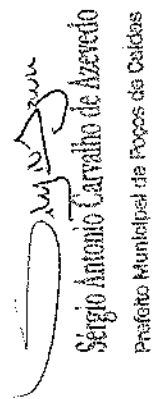 Sérgio Antonio Carvalho de Azevedo
Prefeito Municipal de Poços de Caldas